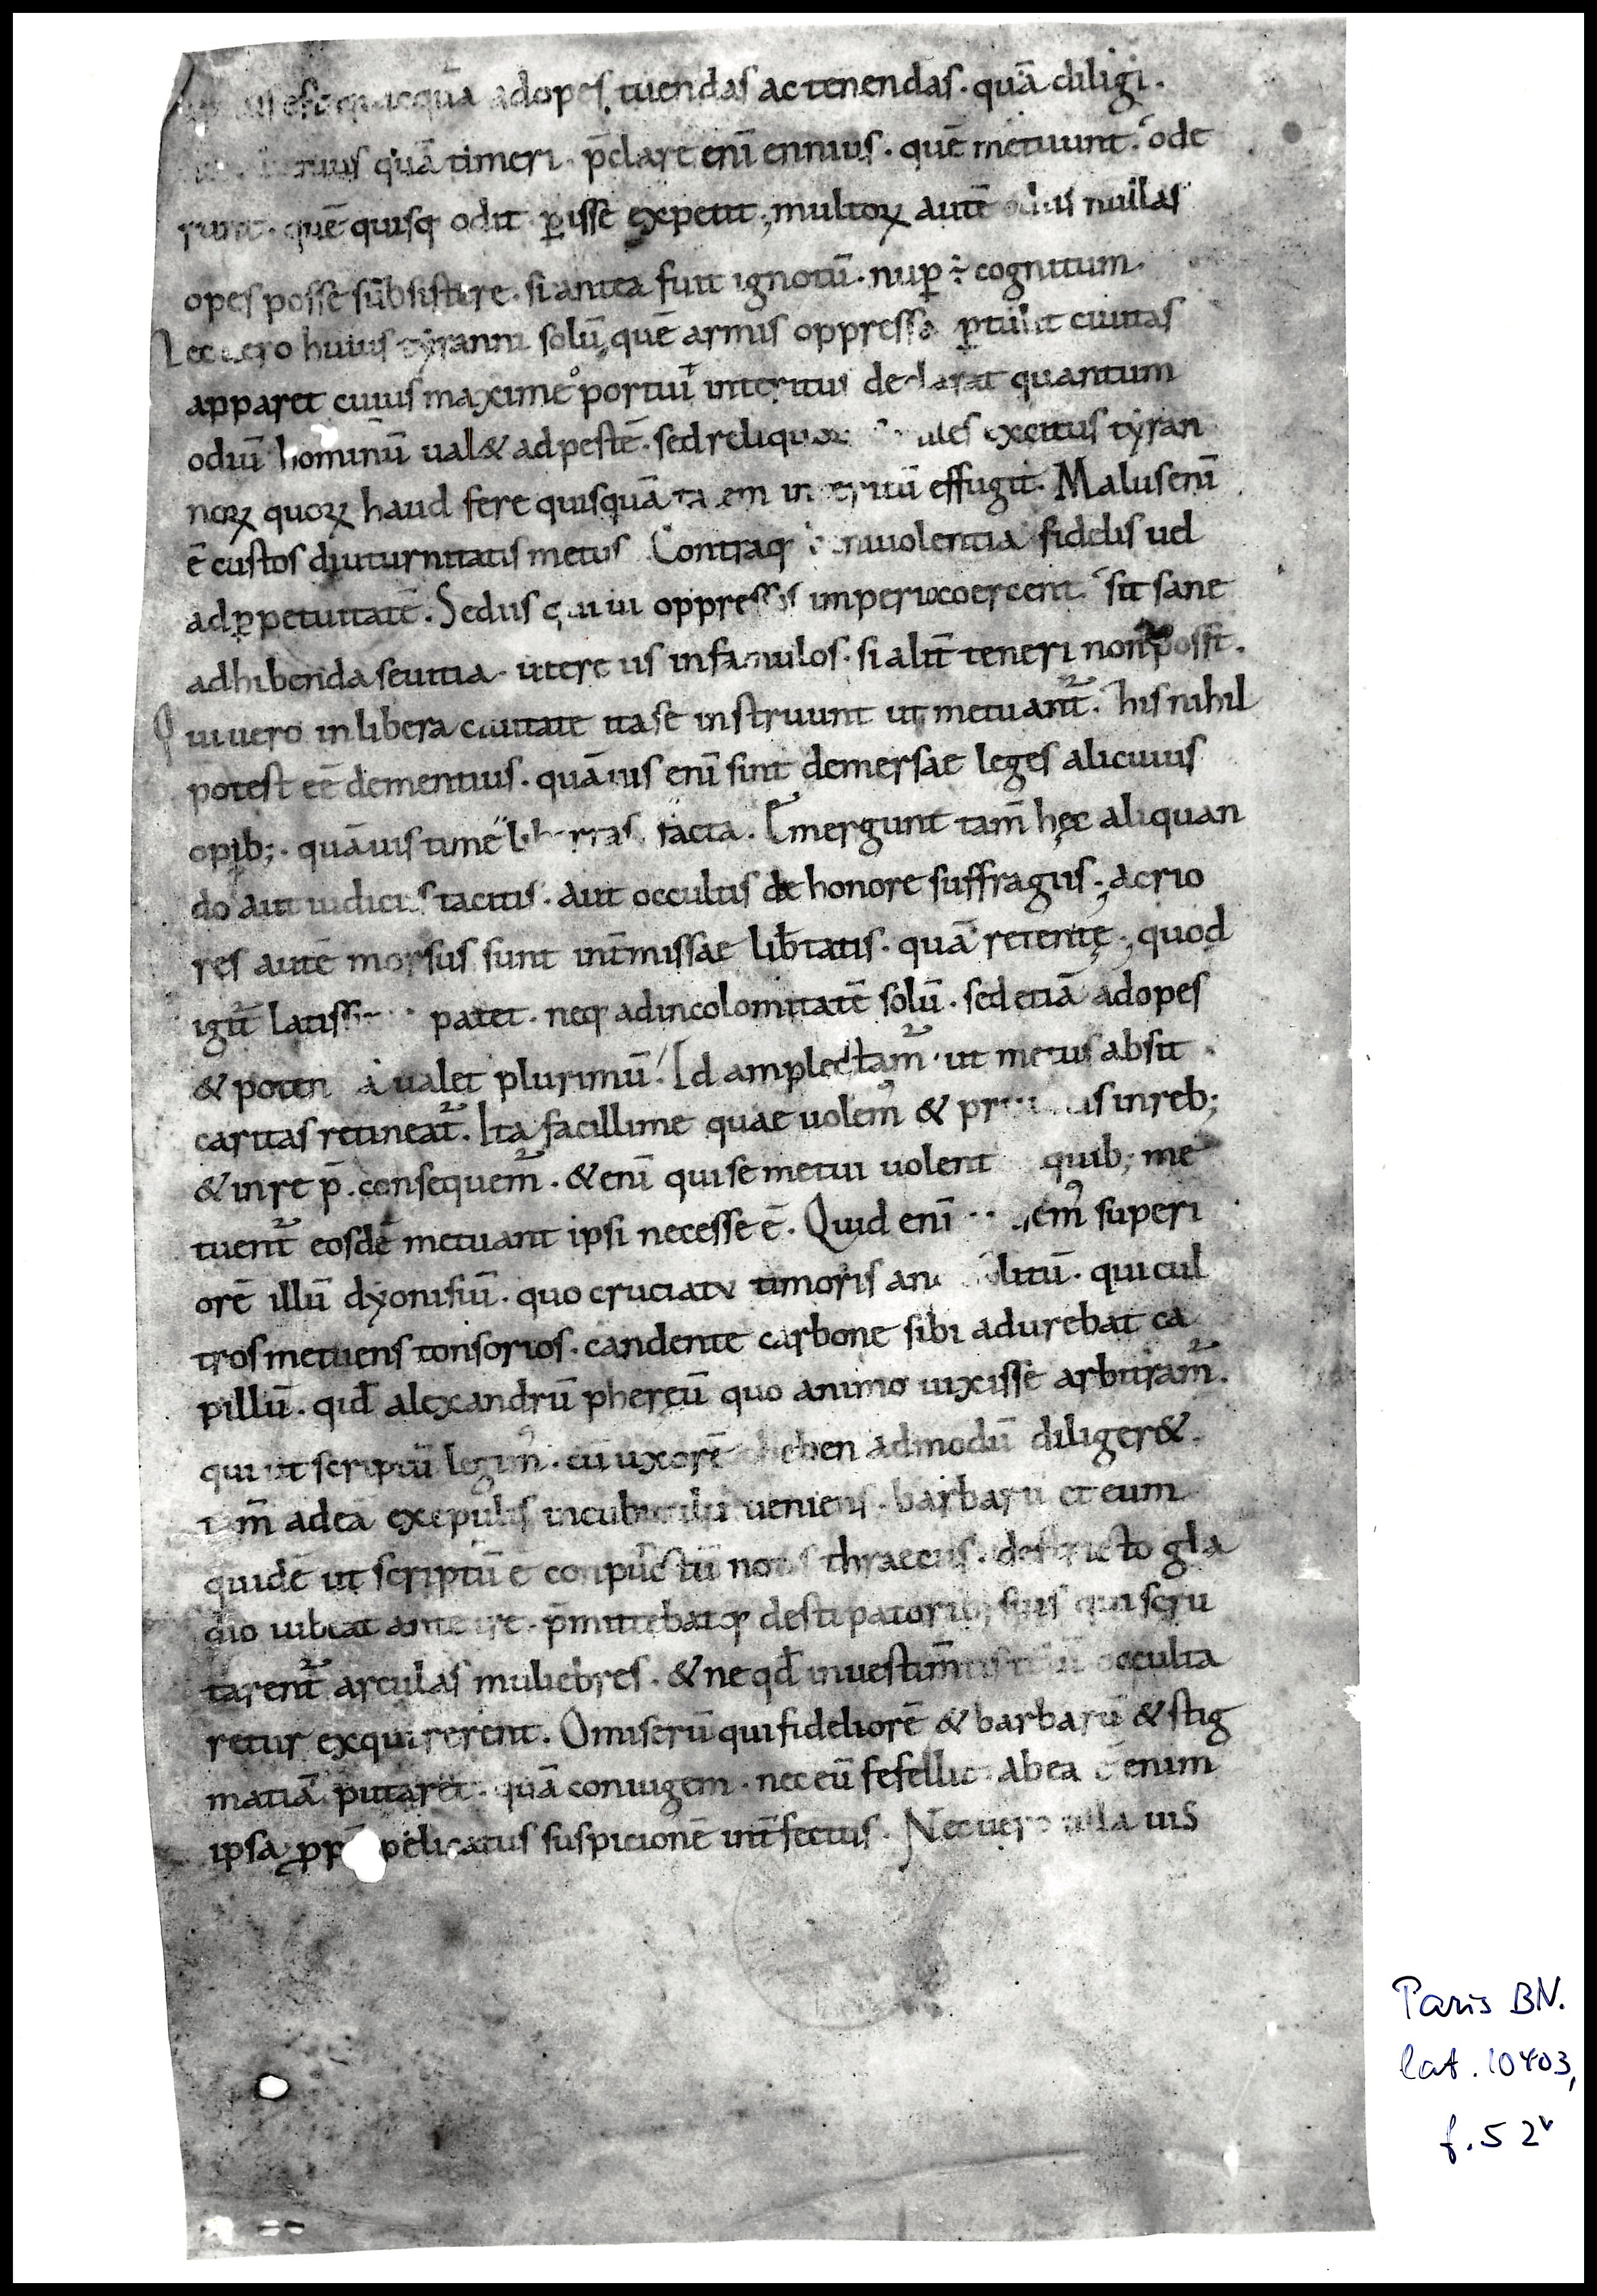 adopes tuendas ac tenendas · quā diligi ·
quā timeri · p̄clare enī ennius · quē metuunt · ode
runt · quē quisq odit · ꝑisse expetit ; multoꝝ autē odiis nullas
opes posse subsistere · si antea fuit ignotū · nuꝑ ÷ cognitum ·
Nec uero huius tyranni solū quē armis oppressa ꝑtulit ciuitas
apparet cuius maxime portuı̄ interitus declarat quantum
odiū hominū ual& ad pestē · sed reliquoꝝ exitus tyran
noꝝ quoꝝ haud fere quisquā talem interitū effugit · Malus enī
ē custos diuturnitatis metus Contraq beniuolentia fidelis uel
ad ꝑpetuitatē · Sed iis qui ui oppressos imperio coercent · sit sane
adhibenda seuitia · ut ere iis in famulos · si alit̄ teneri non possit ·
Qui uero in libera ciuitate ita se instruunt ut metuant̄ · his nihil
potest eē dementius · quāuis enī sint demersae leges alicuius
opib; · quāuis timē libertas tacta · Emergunt tam̄ hęc aliquan
do aut iudiciis tacitis · aut occultis de honore suffragiis ; acrio
res autē morsus sunt int̄missae lib̄tatis · quā retentę ; quod
igit̄ latissi patet · neq ad incolomitatē solū · sed etiā ad opes
& poten ā ualet plurimū · Id amplectam̄ · ut metus absit ·
caritas retineat̄ · Ita facillime quae uolem̄ & priuatis in reb;
& in re p̄ · consequem̄ · & enī qui se metui uolent quib; me
tuent̄ eosdē metuant ipsi necesse ē · Quid enī superi
orē illū dyonisiū · quo cruciatu timoris an litū · qui cul
tros metuens tonsorios · candente carbone sibi adurebat ca
pillū · qid̄ alexandrū phereū quo animo uixisse arbitram̄ ·
qui ut scriptū legim̄ · cū uxorē theben admodū diliger& ·
tam̄ ad eā ex epulis in cubiculū ueniens · barbarū et eum
quidē ut scriptū ē conpūctū notis thraeciis · destricto gla
dio iubeat ante ire · p̄mittebatq de stipatorib; suis qui scru
tarent̄ arculas muliebres · & ne qd̄ in uestim̄tis telū occulta
retur exquirerent · O miserū qui fideliorē & barbarū & stig
matiā putaret · quā coniugem · nec eū fefellit · Ab ea ē enim
ipsa ꝓp pelicatus suspicionē int̄fectus · Nec uero ulla uis
Paris BN.
lat. 10403,
f. 52ᵛ